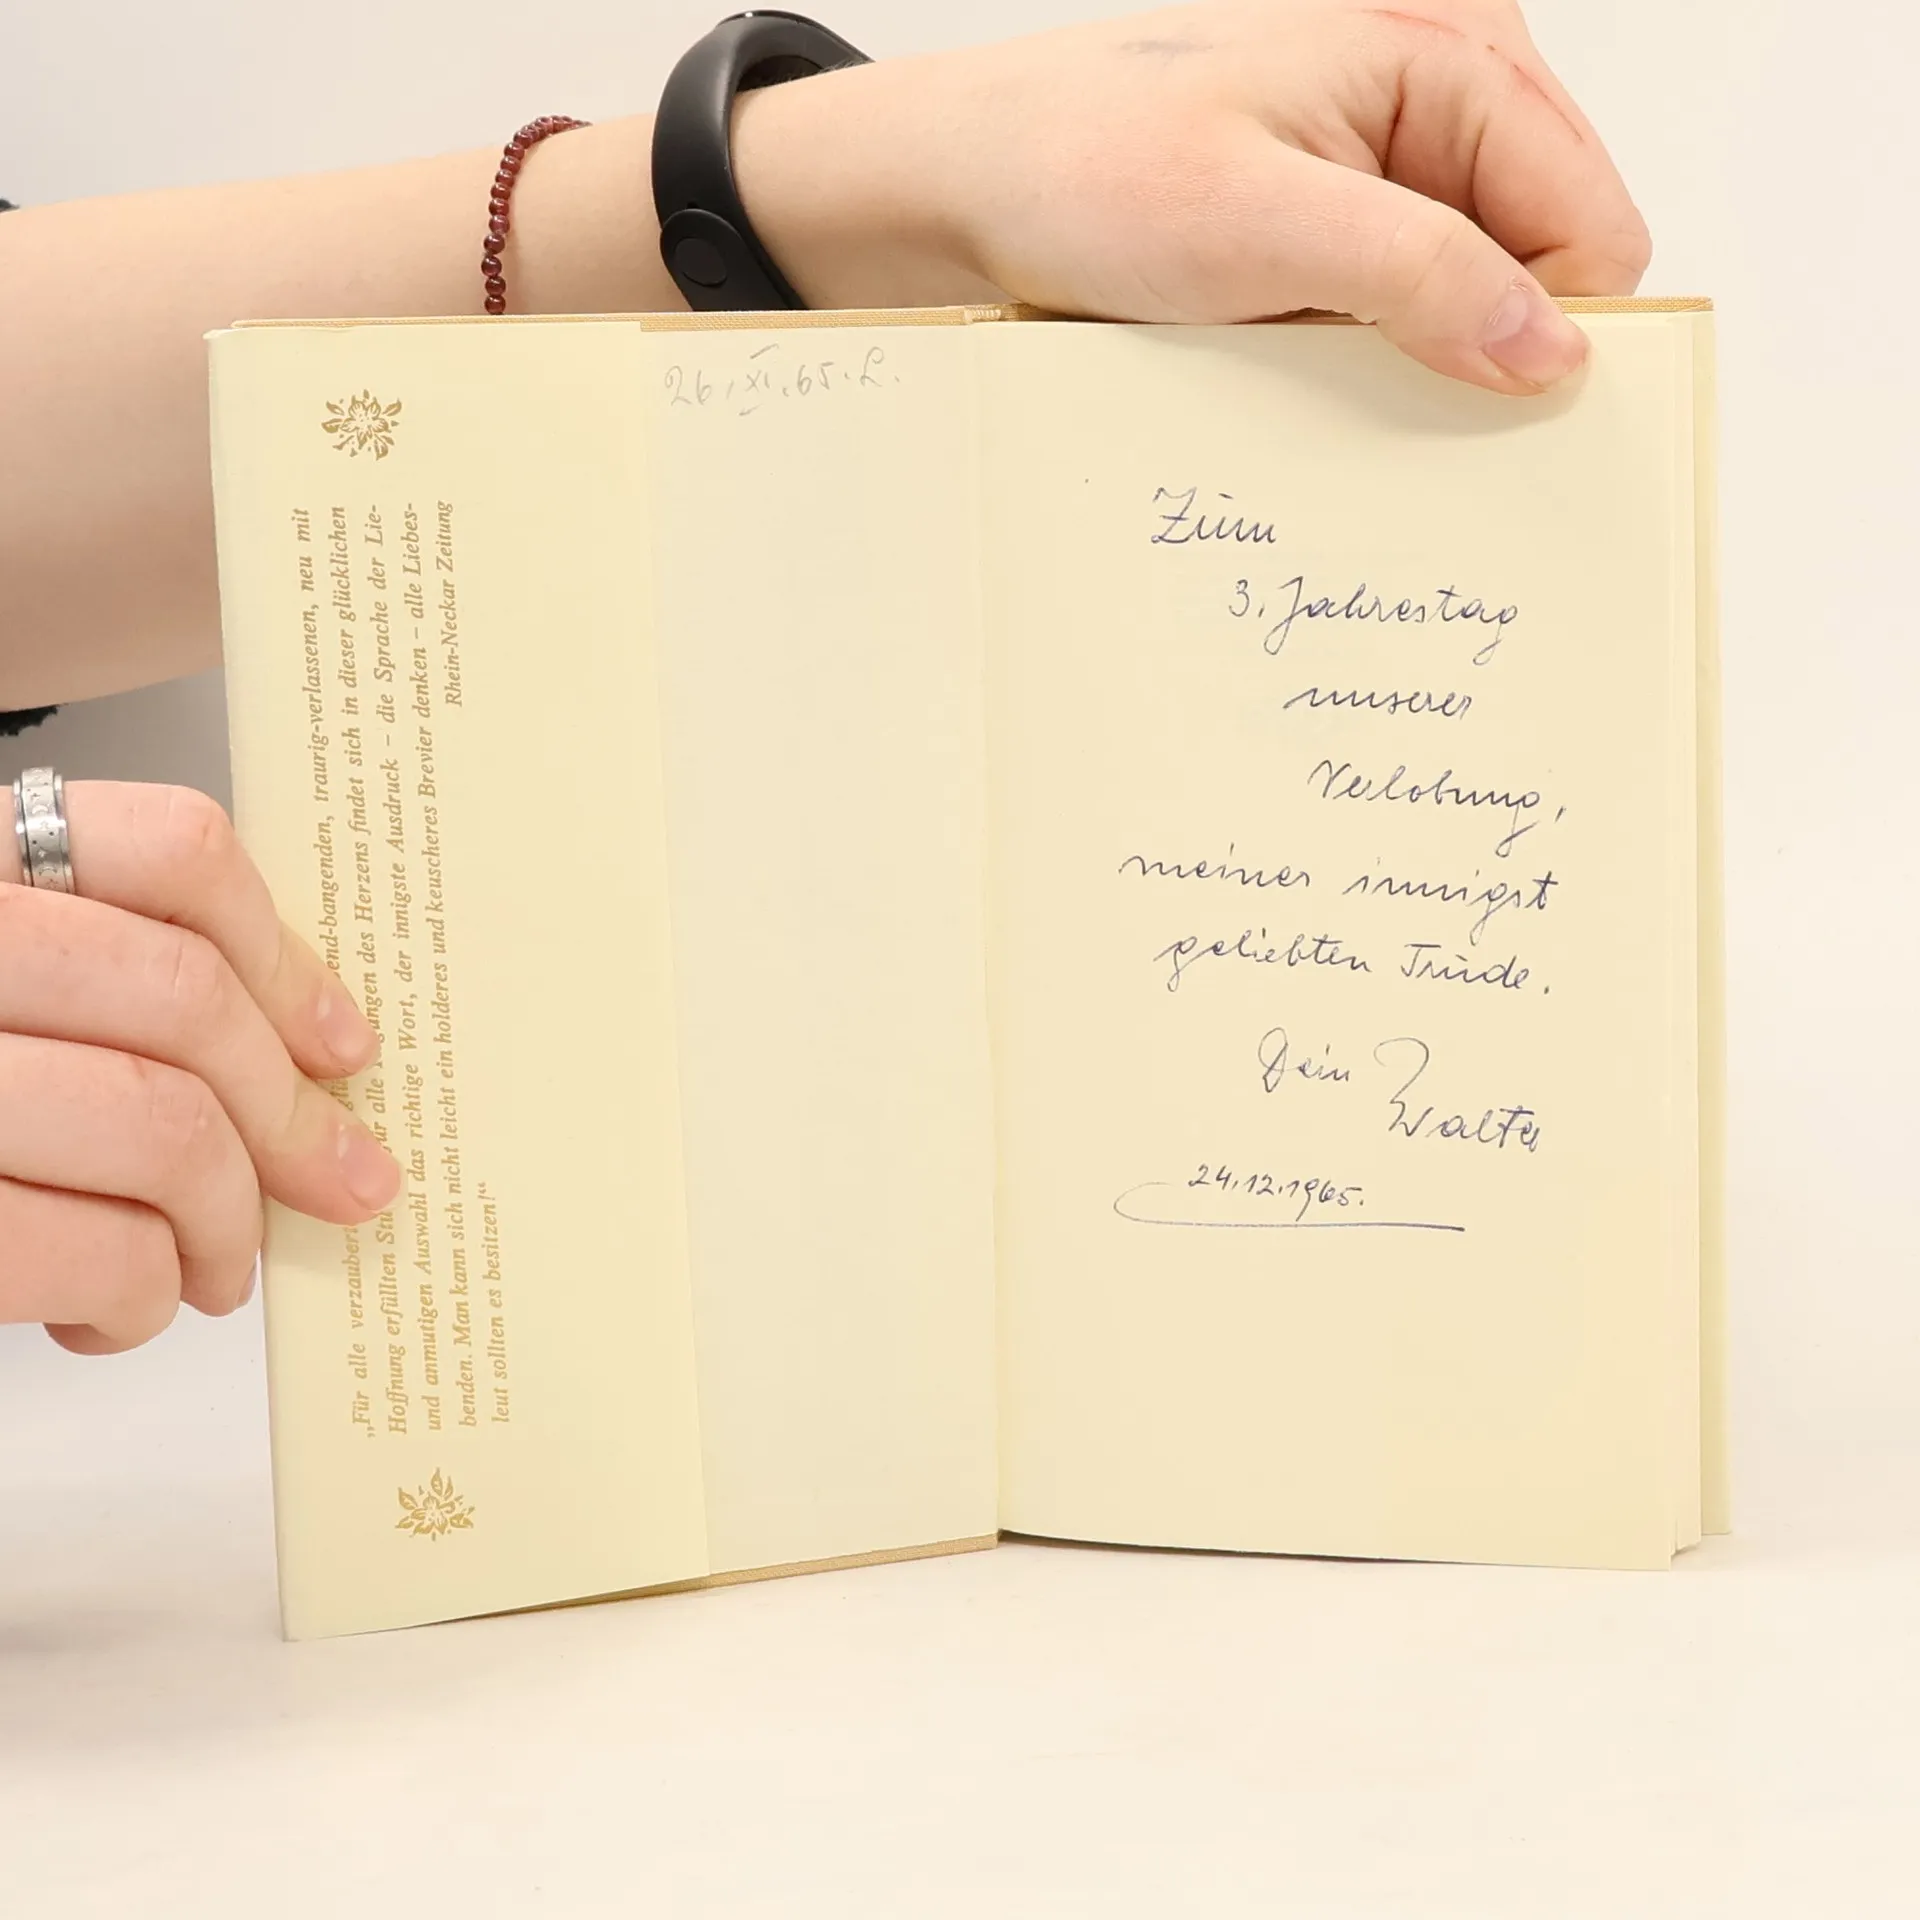 „Für alle verzaubert end-bangenden, traurig-verlassenen, neu mit
Hoffnung erfüllten für alle des Herzens findet sich in dieser glücklichen
und anmutigen Auswahl das richtige Wort, der innigste Ausdruck – die Sprache der Lie-
benden. Man kann sich nicht leicht ein holderes und keuscheres Brevier denken – alle Liebes-
leut sollten es besitzen!“
Rhein-Neckar Zeitung
26.XI.65.L.
Zum
3. Jahrestag
unserer
Verlobung,
meiner innigst
geliebten Trude.
Dein
Walter
24.12.1965.